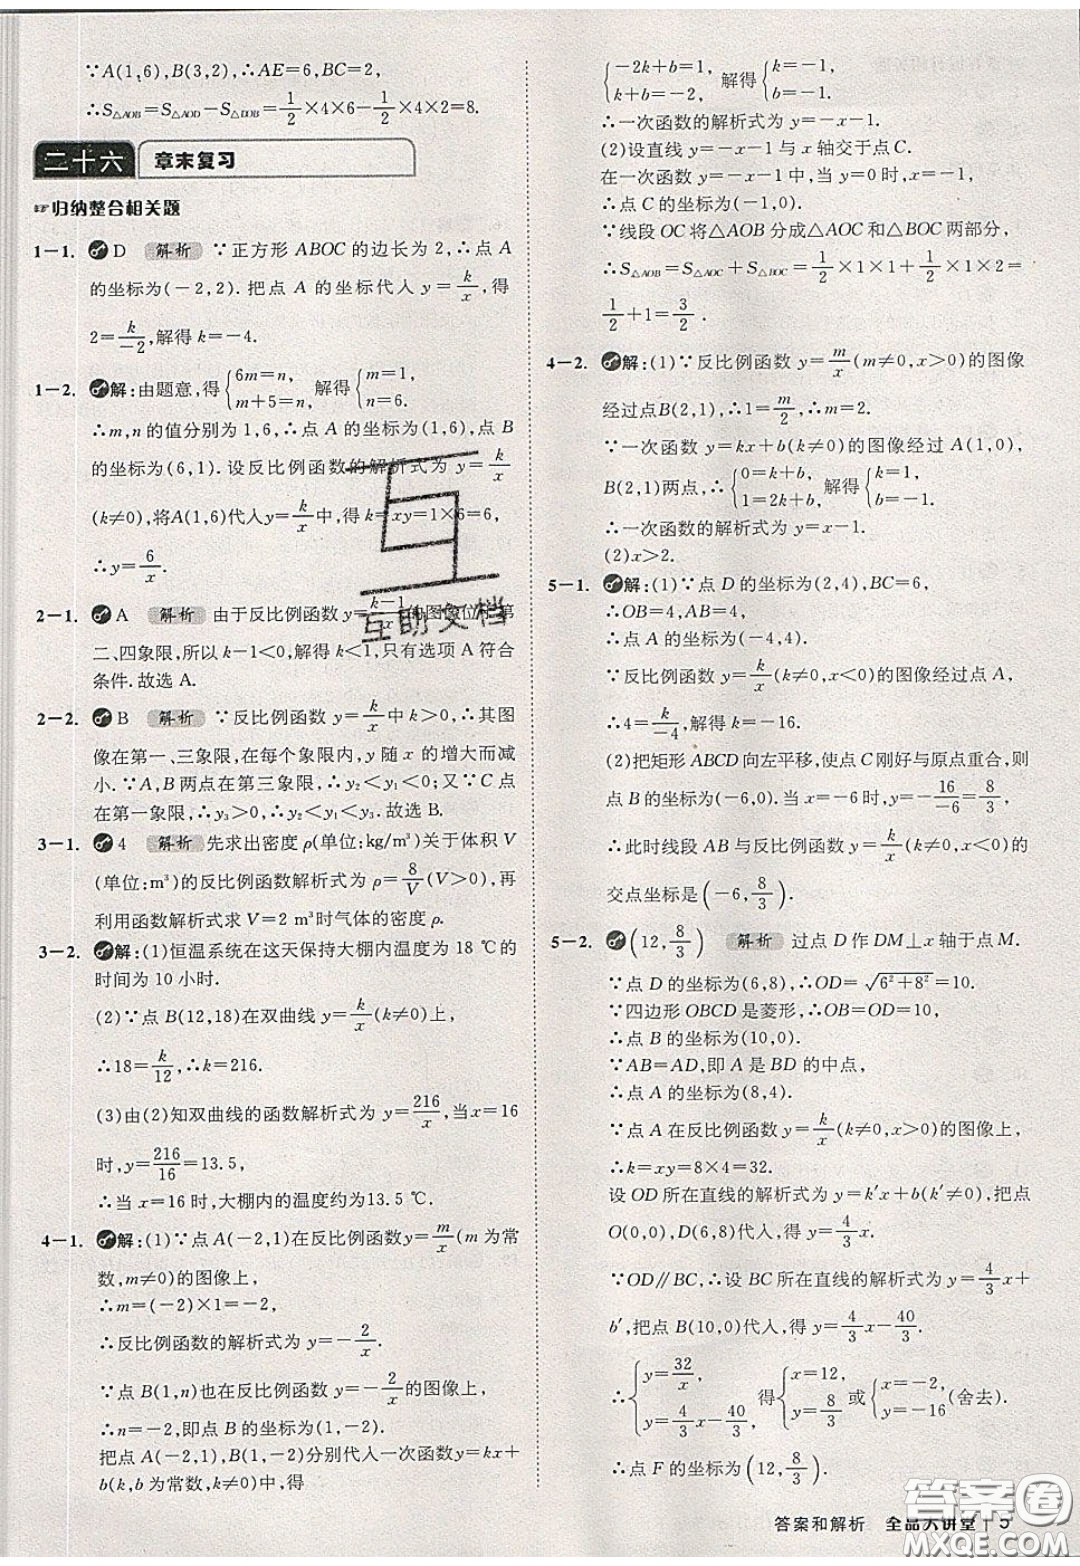 ∵A(1,6),B(3,2),∴AE=6,BC=2,
∴S△AOB=S△AOD−S△DOB=1/2×4×6−1/2×4×2=8.
二十六 章末复习
☞归纳整合相关题
1−1. D 解析 ∵正方形 ABOC 的边长为 2,∴点 A
的坐标为(−2,2).把点 A 的坐标代入 y=k/x,得
2=k/−2,解得 k=−4.
1−2. 解:由题意,得{6m=n, m+5=n, 解得{m=1, n=6.
∴m,n的值分别为 1,6,∴点 A 的坐标为(1,6),点 B
的坐标为(6,1).设反比例函数的解析式为 y=k/x
(k≠0),将A(1,6)代入y=k/x中,得 k=xy=1×6=6,
∴y=6/x.
2−1. A 解析 由于反比例函数 y=k−1/x的图像位于第
二、四象限,所以 k−1<0,解得 k<1,只有选项 A 符合
条件.故选 A.
2−2. B 解析 ∵反比例函数 y=k/x中 k>0,∴其图
像在第一、三象限,在每个象限内,y 随 x 的增大而减
小.∵A,B 两点在第三象限,∴y₂<y₁<0;又∵C 点
在第一象限,∴y₃>0,∴y₂<y₁<y₃.故选 B.
3−1. 4 解析 先求出密度 ρ(单位:kg/m³)关于体积 V
(单位:m³)的反比例函数解析式为 ρ=8/V(V>0),再
利用函数解析式求 V=2 m³时气体的密度 ρ.
3−2. 解:(1)恒温系统在这天保持大棚内温度为 18 ℃的
时间为 10 小时.
(2)∵点 B(12,18)在双曲线 y=k/x(k≠0)上,
∴18=k/12,∴k=216.
(3)由(2)知双曲线的函数解析式为 y=216/x,当 x=16
时,y=216/16=13.5,
∴当 x=16 时,大棚内的温度约为13.5 ℃.
4−1. 解:(1)∵点 A(−2,1)在反比例函数y=m/x(m 为常
数,m≠0)的图像上,
∴m=(−2)×1=−2,
∴反比例函数的解析式为 y=−2/x.
∵点 B(1,n)也在反比例函数 y=−2/x的图像上,
∴n=−2,即点 B 的坐标为(1,−2).
把点 A(−2,1),B(1,−2)分别代入一次函数y=kx+
b(k,b为常数,k≠0)中,得
{−2k+b=1, k+b=−2, 解得{k=−1, b=−1.
∴一次函数的解析式为 y=−x−1.
(2)设直线 y=−x−1 与 x 轴交于点 C.
在一次函数 y=−x−1 中,令 y=0,则 x=−1,
∴点 C 的坐标为(−1,0).
∵线段 OC 将△AOB 分成△AOC 和△BOC 两部分,
∴S△AOB=S△AOC+S△BOC=1/2×1×1+1/2×1×2=
1/2+1=3/2.
4−2. 解:(1)∵反比例函数 y=m/x(m≠0,x>0)的图像
经过点B(2,1),∴1=m/2,∴m=2.
∵一次函数 y=kx+b(k≠0)的图像经过 A(1,0),
B(2,1)两点,∴{0=k+b, 1=2k+b, 解得{k=1, b=−1.
∴一次函数的解析式为 y=x−1.
(2)x>2.
5−1. 解:(1)∵点 D 的坐标为(2,4),BC=6,
∴OB=4,AB=4,
∴点 A 的坐标为(−4,4).
∵反比例函数 y=k/x(k≠0)的图像经过点 A,
∴4=k/−4,解得 k=−16.
(2)把矩形 ABCD 向左平移,使点 C 刚好与原点重合,则
点 B 的坐标为(−6,0).当 x=−6时,y=−16/−6=8/3,
∴此时线段 AB 与反比例函数 y=k/x(k≠0,x<0)的
交点坐标是(−6,8/3).
5−2. (12,8/3) 解析 过点 D 作 DM⊥x 轴于点 M.
∵点 D 的坐标为(6,8),∴OD=√6²+8²=10.
∵四边形 OBCD 是菱形,∴OB=OD=10,
∴点 B 的坐标为(10,0).
∵AB=AD,即 A 是 BD 的中点,
∴点 A 的坐标为(8,4).
∵点 A 在反比例函数 y=k/x(k≠0,x>0)的图像上,
∴k=xy=8×4=32.
设 OD 所在直线的解析式为 y=k′x+b(k′≠0),把点
O(0,0),D(6,8)代入,得 y=4/3x.
∵OD∥BC,∴设 BC 所在直线的解析式为 y=4/3x+
b′,把点 B(10,0)代入,得 y=4/3x−40/3.
∴{y=32/x, y=4/3x−40/3, 得{x=12, y=8/3 或{x=−2, y=−16(舍去).
∴点 F 的坐标为(12,8/3).
答案和解析 全品大讲堂 5
互助文档
答案圈
MXQE.COM